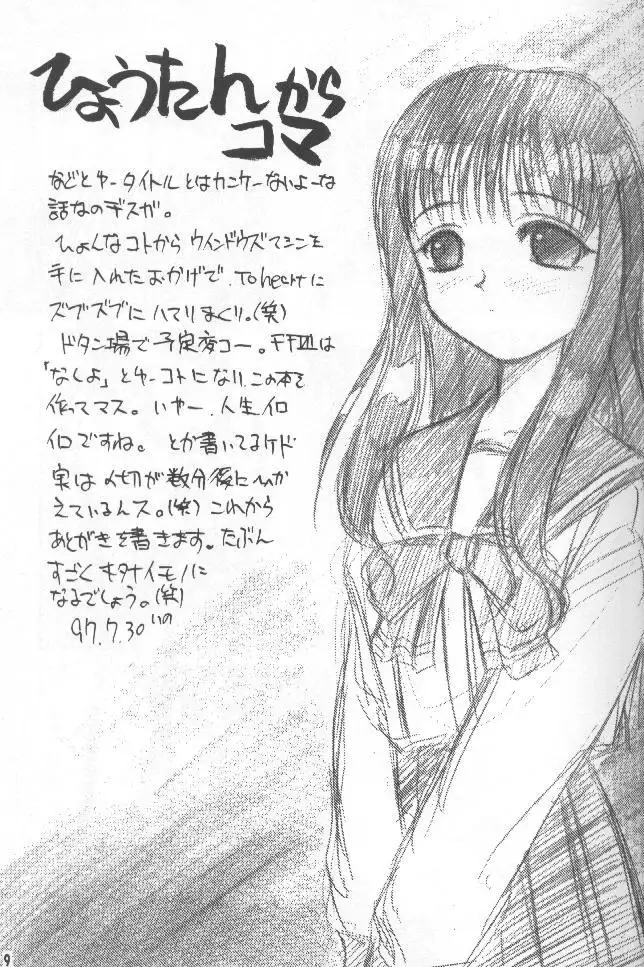 ひょうたんから
コマ
などとゆータイトルとはカンケーないよーな
話なのデスガ。
ひょんなコトからウインドウズマシンを
手に入れたおかげで、To heartに
ズブズブにハマりまくり。(笑)
ドタン場で予定変コー。FFVIIは
「なしよ」とゆーコトになり、この本を
作ってマス。いやー、人生イロ
イロですね。とか書いてるケド
実は〆切が数分後にひか
えているんス。(笑)これから
あとがきを書きます。たぶん
すごくキタナイモノに
なるでしょう。(笑)
97.7.30 いの
9